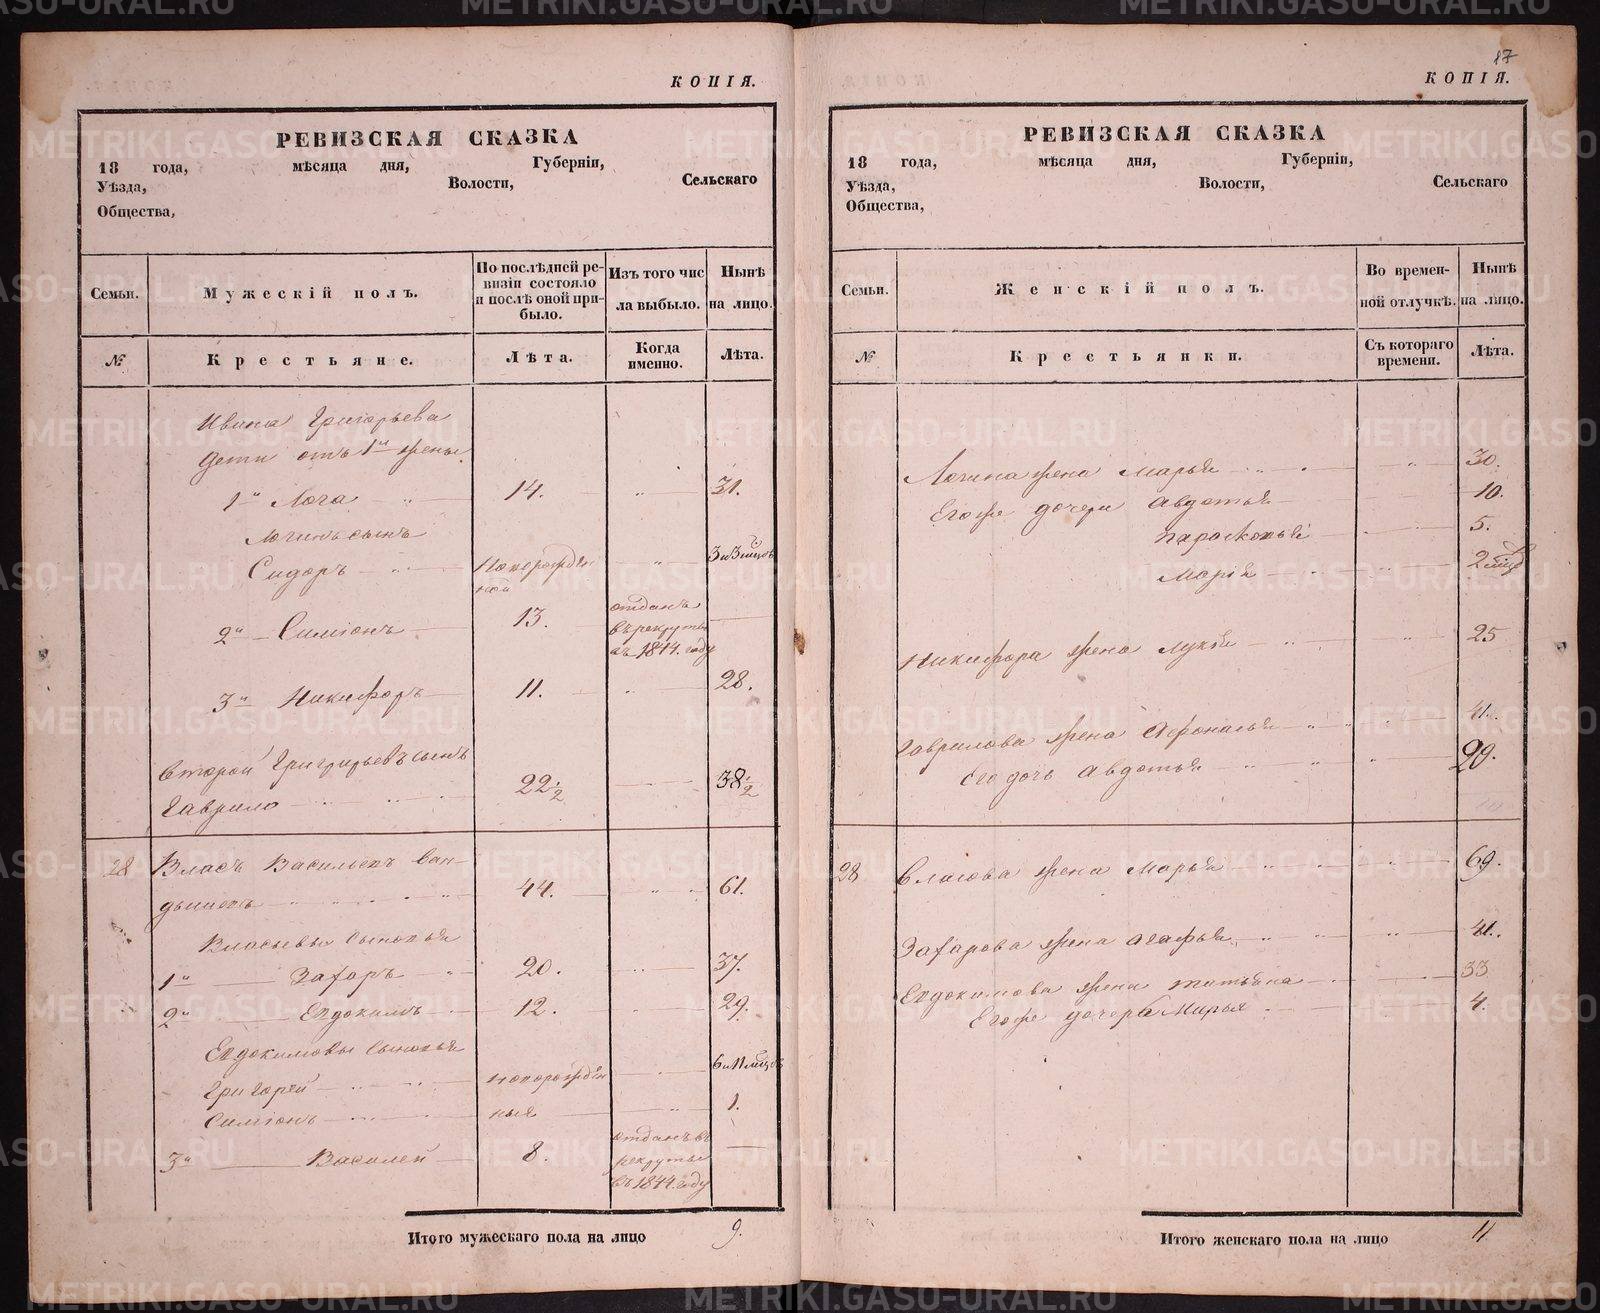 КОПІЯ.
РЕВИЗСКАЯ СКАЗКА
18 года, мѣсяца дня, Губерніи,
Уѣзда, Волости, Сельскаго
Общества,
Семьи. Мужескій полъ. По послѣдней ре-визіи состояло и послѣ оной при-было. Изъ того чис ла выбыло. Нынѣ на лицо.
№ Крестьяне. Лѣта. Когда именно. Лѣта.
Ивана Григорьева
дети отъ 1й жены
1й Лога 14. „ 31.
Логинъ сынъ
Сидоръ Новорожден ной „ 3 и 3 мѣсцов
2й Симіонъ 13. отданъ
въ рекруты
въ 1844. году
3й Никифоръ 11. „ 28.
Второй Григорьевъ сынъ
Гаврило 22 1/2 38 1/2
28 Власъ Васильевъ Ван-
дышевъ 44. „ 61.
Власьевы сыновья
1й Захаръ 20. „ 37.
2й Евдокимъ 12. „ 29.
Евдокимовы сыновья
Григорей новорожден „ 6 и 11 мѣсцов
Симіонъ ныя „ 1.
3й Василей 8. отданъ въ
рекруты
въ 1844. году
Итого мужескаго пола на лицо 9.
17
КОПІЯ.
РЕВИЗСКАЯ СКАЗКА
18 года, мѣсяца дня, Губерніи,
Уѣзда, Волости, Сельскаго
Общества,
Семьи. Женскій полъ. Во времен-ной отлучкѣ. Нынѣ на лицо.
№ Крестьянки. Съ котораго времени. Лѣта.
Логина жена Марья „ 30.
Его же дочери Авдотья 10.
Парасковья 5.
Марія 2 мѣсц
Никифора жена Лукья „ 25
Гаврилова жена Афонасья „ 41.
Его дочь Авдотья „ 20.
28 Власова жена Марья „ 69.
Захарова жена Агафья „ 41.
Евдокимова жена Татьяна 33
Его же дочерь Марья 4.
Итого женскаго пола на лицо 11
METRIKI.GASO-URAL.RU